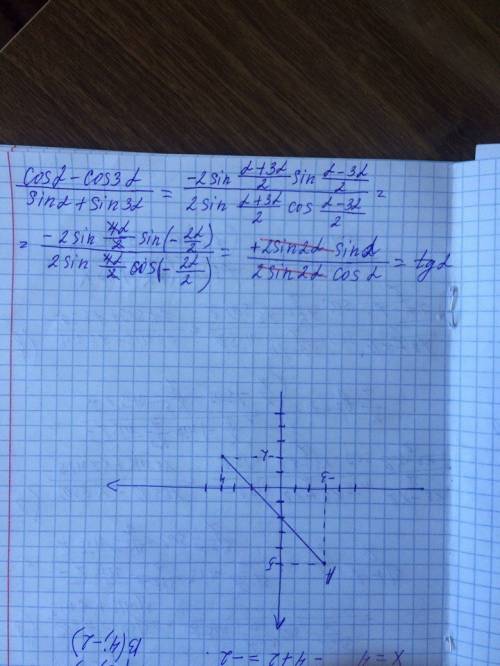 (cosα - cos3α)/(sinα + sin3α) = (-2sin (α+3α)/2 sin (α-3α)/2)/(2sin (α+3α)/2 cos (α-3α)/2) =
= (-2sin 4α/2 sin(-2α/2))/(2sin 4α/2 cos(-2α/2)) = (+2sin2α sinα)/(2sin2α cosα) = tgα
-2
4
-3
5
A
B(4;-2)
x=4 -4+2=-2.